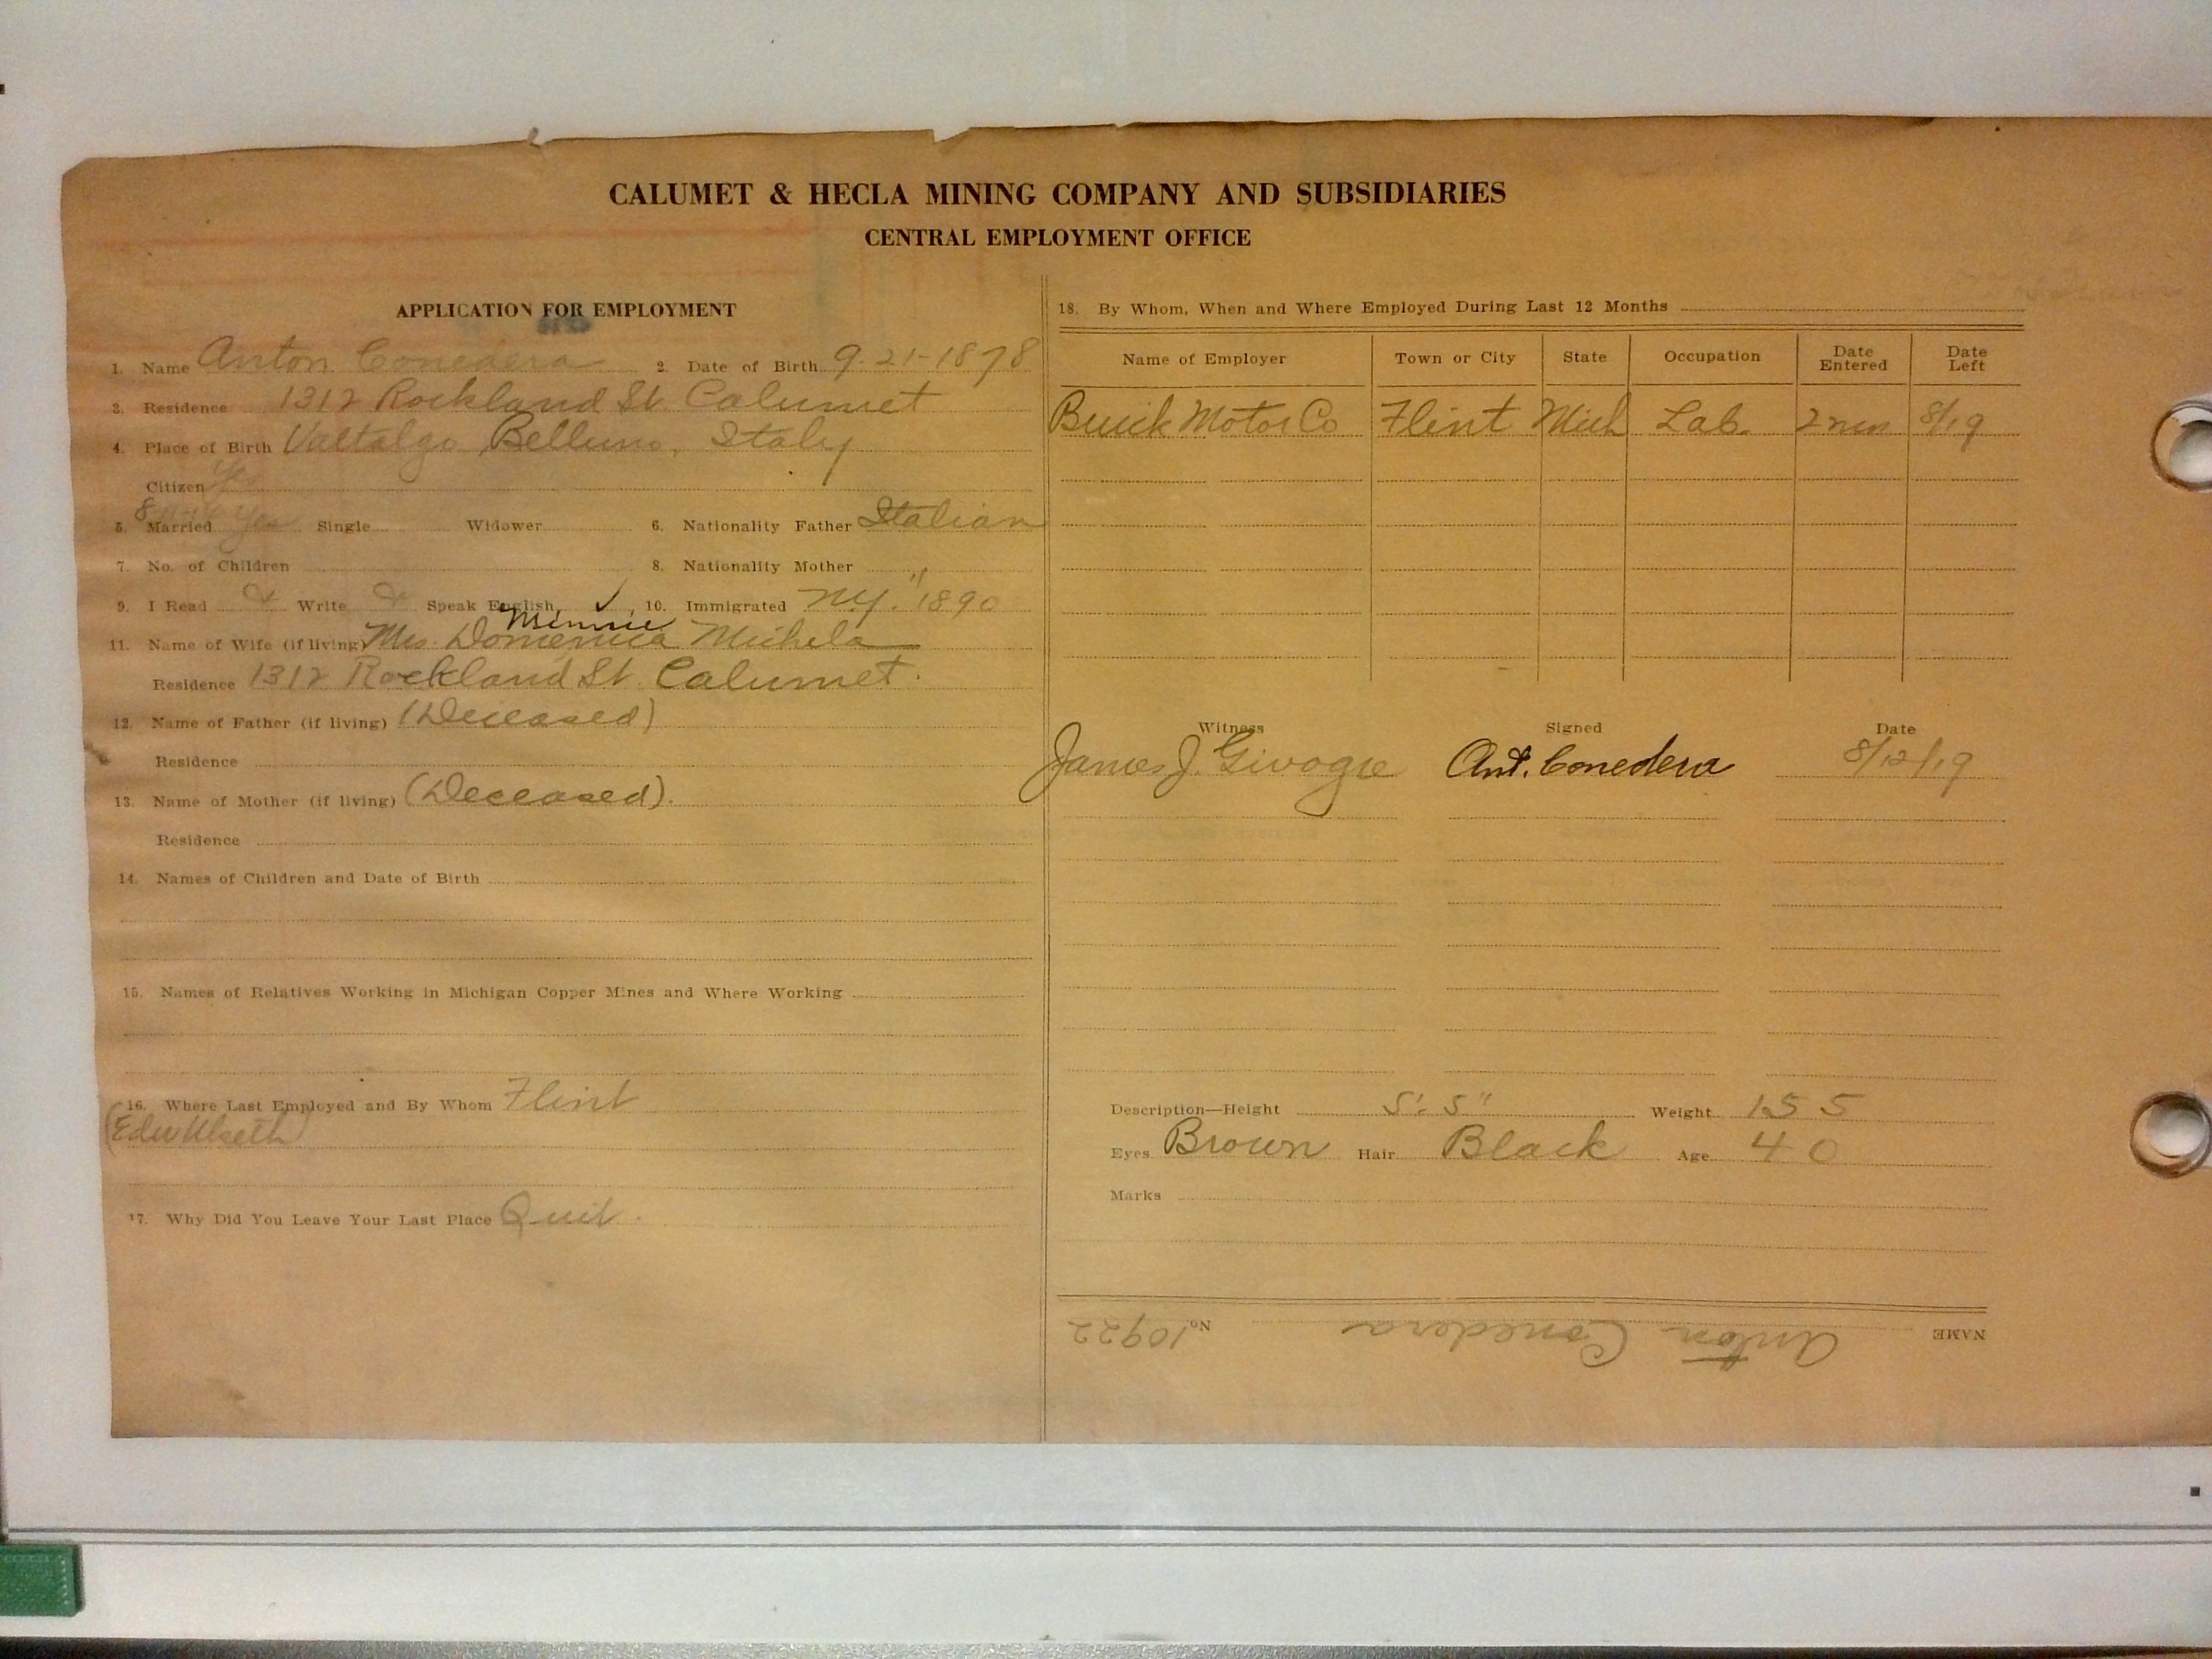 CALUMET & HECLA MINING COMPANY AND SUBSIDIARIES
CENTRAL EMPLOYMENT OFFICE
APPLICATION FOR EMPLOYMENT
1. Name Anton Conedera 2. Date of Birth 9-21-1878
3. Residence 1312 Rockland St. Calumet
4. Place of Birth Valtalgo Belluno, Italy
Citizen Yes
5. Married Yes Single Widower 6. Nationality Father Italian
7. No. of Children 8. Nationality Mother "
9. I Read Write Speak English ✓ 10. Immigrated N.Y. 1890
Minnie
11. Name of Wife (if living) Mrs. Domenica Michela
Residence 1312 Rockland St. Calumet.
12. Name of Father (if living) (Deceased)
Residence
13. Name of Mother (if living) (Deceased).
Residence
14. Names of Children and Date of Birth
15. Names of Relatives Working in Michigan Copper Mines and Where Working
16. Where Last Employed and By Whom Flint
17. Why Did You Leave Your Last Place Quit.
18. By Whom, When and Where Employed During Last 12 Months
Name of Employer Town or City State Occupation Date Entered Date Left
Buick Motor Co Flint Mich Lab. 8/19
Witness Signed Date
James J. Ant. Conedera 8/12/19
Description—Height 5'. 5" Weight 155
Eyes Brown Hair Black Age 40
Marks
NAME Anton Conedera No. 10922